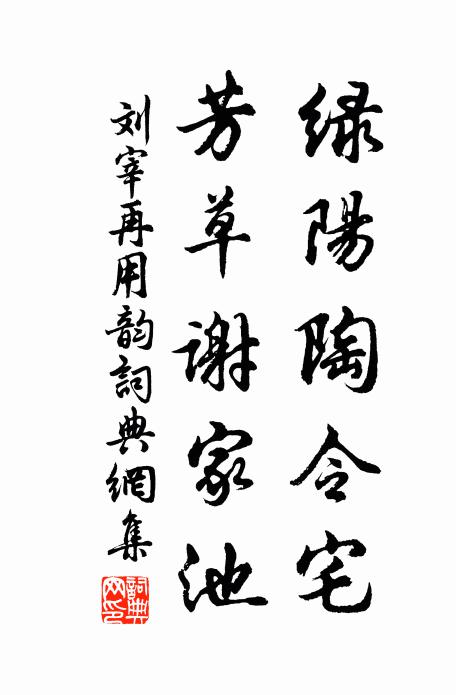 绿陽陶令宅
芳草谢家池
刘宰再用韵詞典網集
詞典网印